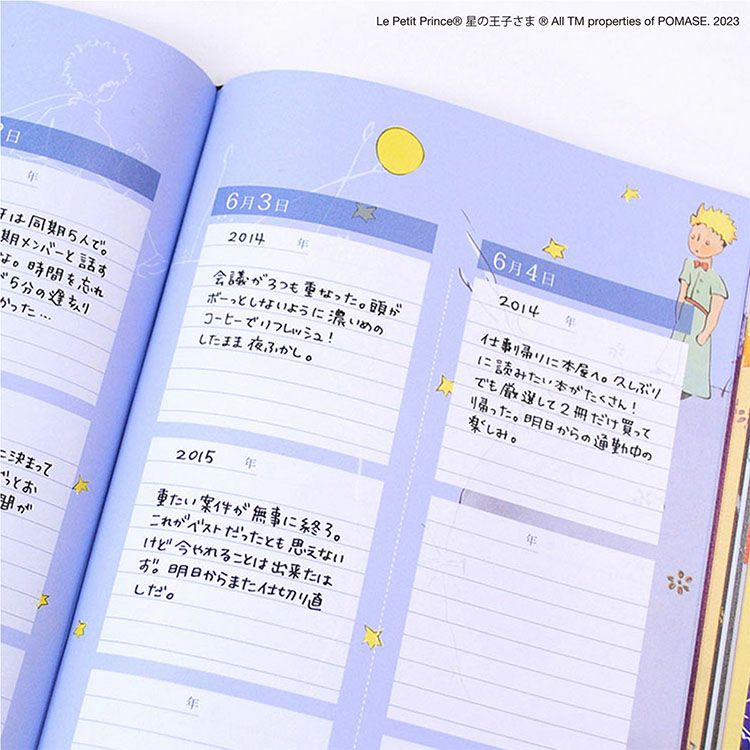 Le Petit Prince® 星の王子さま ® All TM properties of POMASE. 2023
日
年
は同期5人で。
期メンバーと話す
な。時間を忘れ
5分の遅刻
かった…
に決まって
だっとお
間が
6月3日
2014 年
会議が3つも重なった。頭が
ボーっとしないように濃いめの
コーヒーでリフレッシュ!
したまま夜ふかし。
2015 年
重たい案件が無事に終る。
これがベストだったとも思えない
けど今やれることは出来たは
ず。明日からまた仕切り直
しだ。
年
6月4日
2014 年
仕事帰りに本屋へ。久しぶり
に読みたい本がたくさん!
でも厳選して2冊だけ買って
帰った。明日からの通勤中の
楽しみ。
年